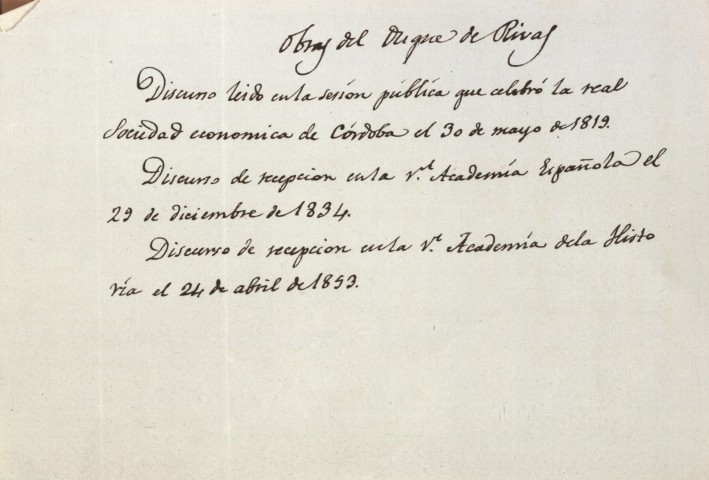 Obras del Duque de Rivas
Discurso leido en la sesión pública que celebró la real
Sociedad economica de Córdoba el 30 de mayo de 1819.
Discurso de recepcion en la r.l Academía Española el
29 de diciembre de 1834.
Discurso de recepcion en la r.l Academía de la Histo
ría el 24 de abril de 1853.